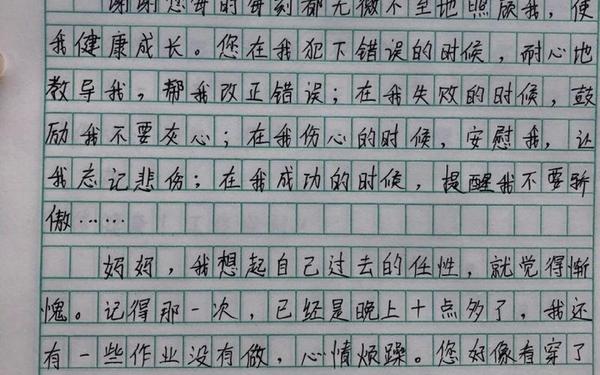 谢谢您每时每刻都无微不至地照顾我，使
我健康成长。您在我犯下错误的时候，耐心地
教导我，帮我改正错误；在我失败的时候，鼓
励我不要灰心；在我伤心的时候，安慰我，让
我忘记悲伤；在我成功的时候，提醒我不要骄
傲……
妈妈，我想起自己过去的任性，就觉得惭
愧。记得那一次，已经是晚上十点多了，我还
有一些作业没有做，心情烦躁。您好像看穿了